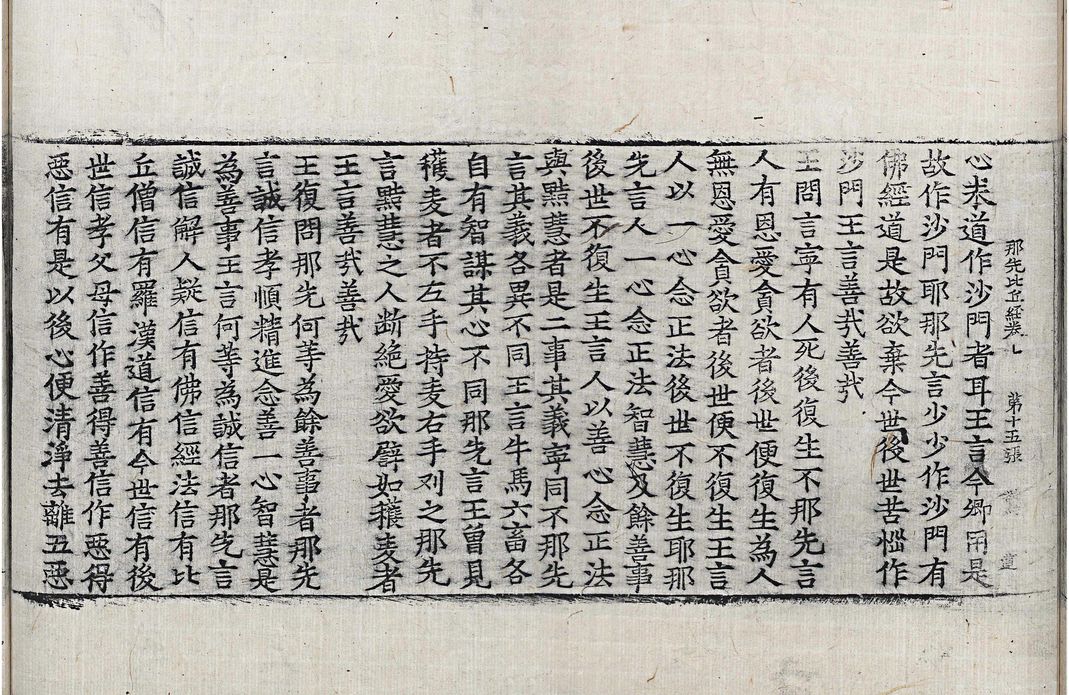 那先比丘經卷上 第十五張
心求道作沙門者耳王言今卿用是
故作沙門耶那先言少少作沙門有
佛經道是故欲棄今世後世苦惱作
沙門王言善㢤善㢤
王問言寧有人死後復生不那先言
人有恩愛貪欲者後世便復生為人
無恩愛貪欲者後世便不復生王言
人以一心念正法後世不復生耶那
先言人一心念正法智慧及餘善事
後世不復生王言人以善心念正法
與黠慧者是二事其義寧同不那先
言其義各異不同王言牛馬六畜各
自有智謀其心不同那先言王曾見
穫麦者不左手持麦右手刈之那先
言黠慧之人断絶愛欲譬如穫麦者
王言善㢤善㢤
王復問那先何等為餘善事者那先
言誠信孝順精進念善一心智慧是
為善事王言何等為誠信者那先言
誠信解人疑信有佛信經法信有比
丘僧信有羅漢道信有今世信有後
世信孝父母信作善得善信作惡得
惡信有是以後心便清淨去離五惡